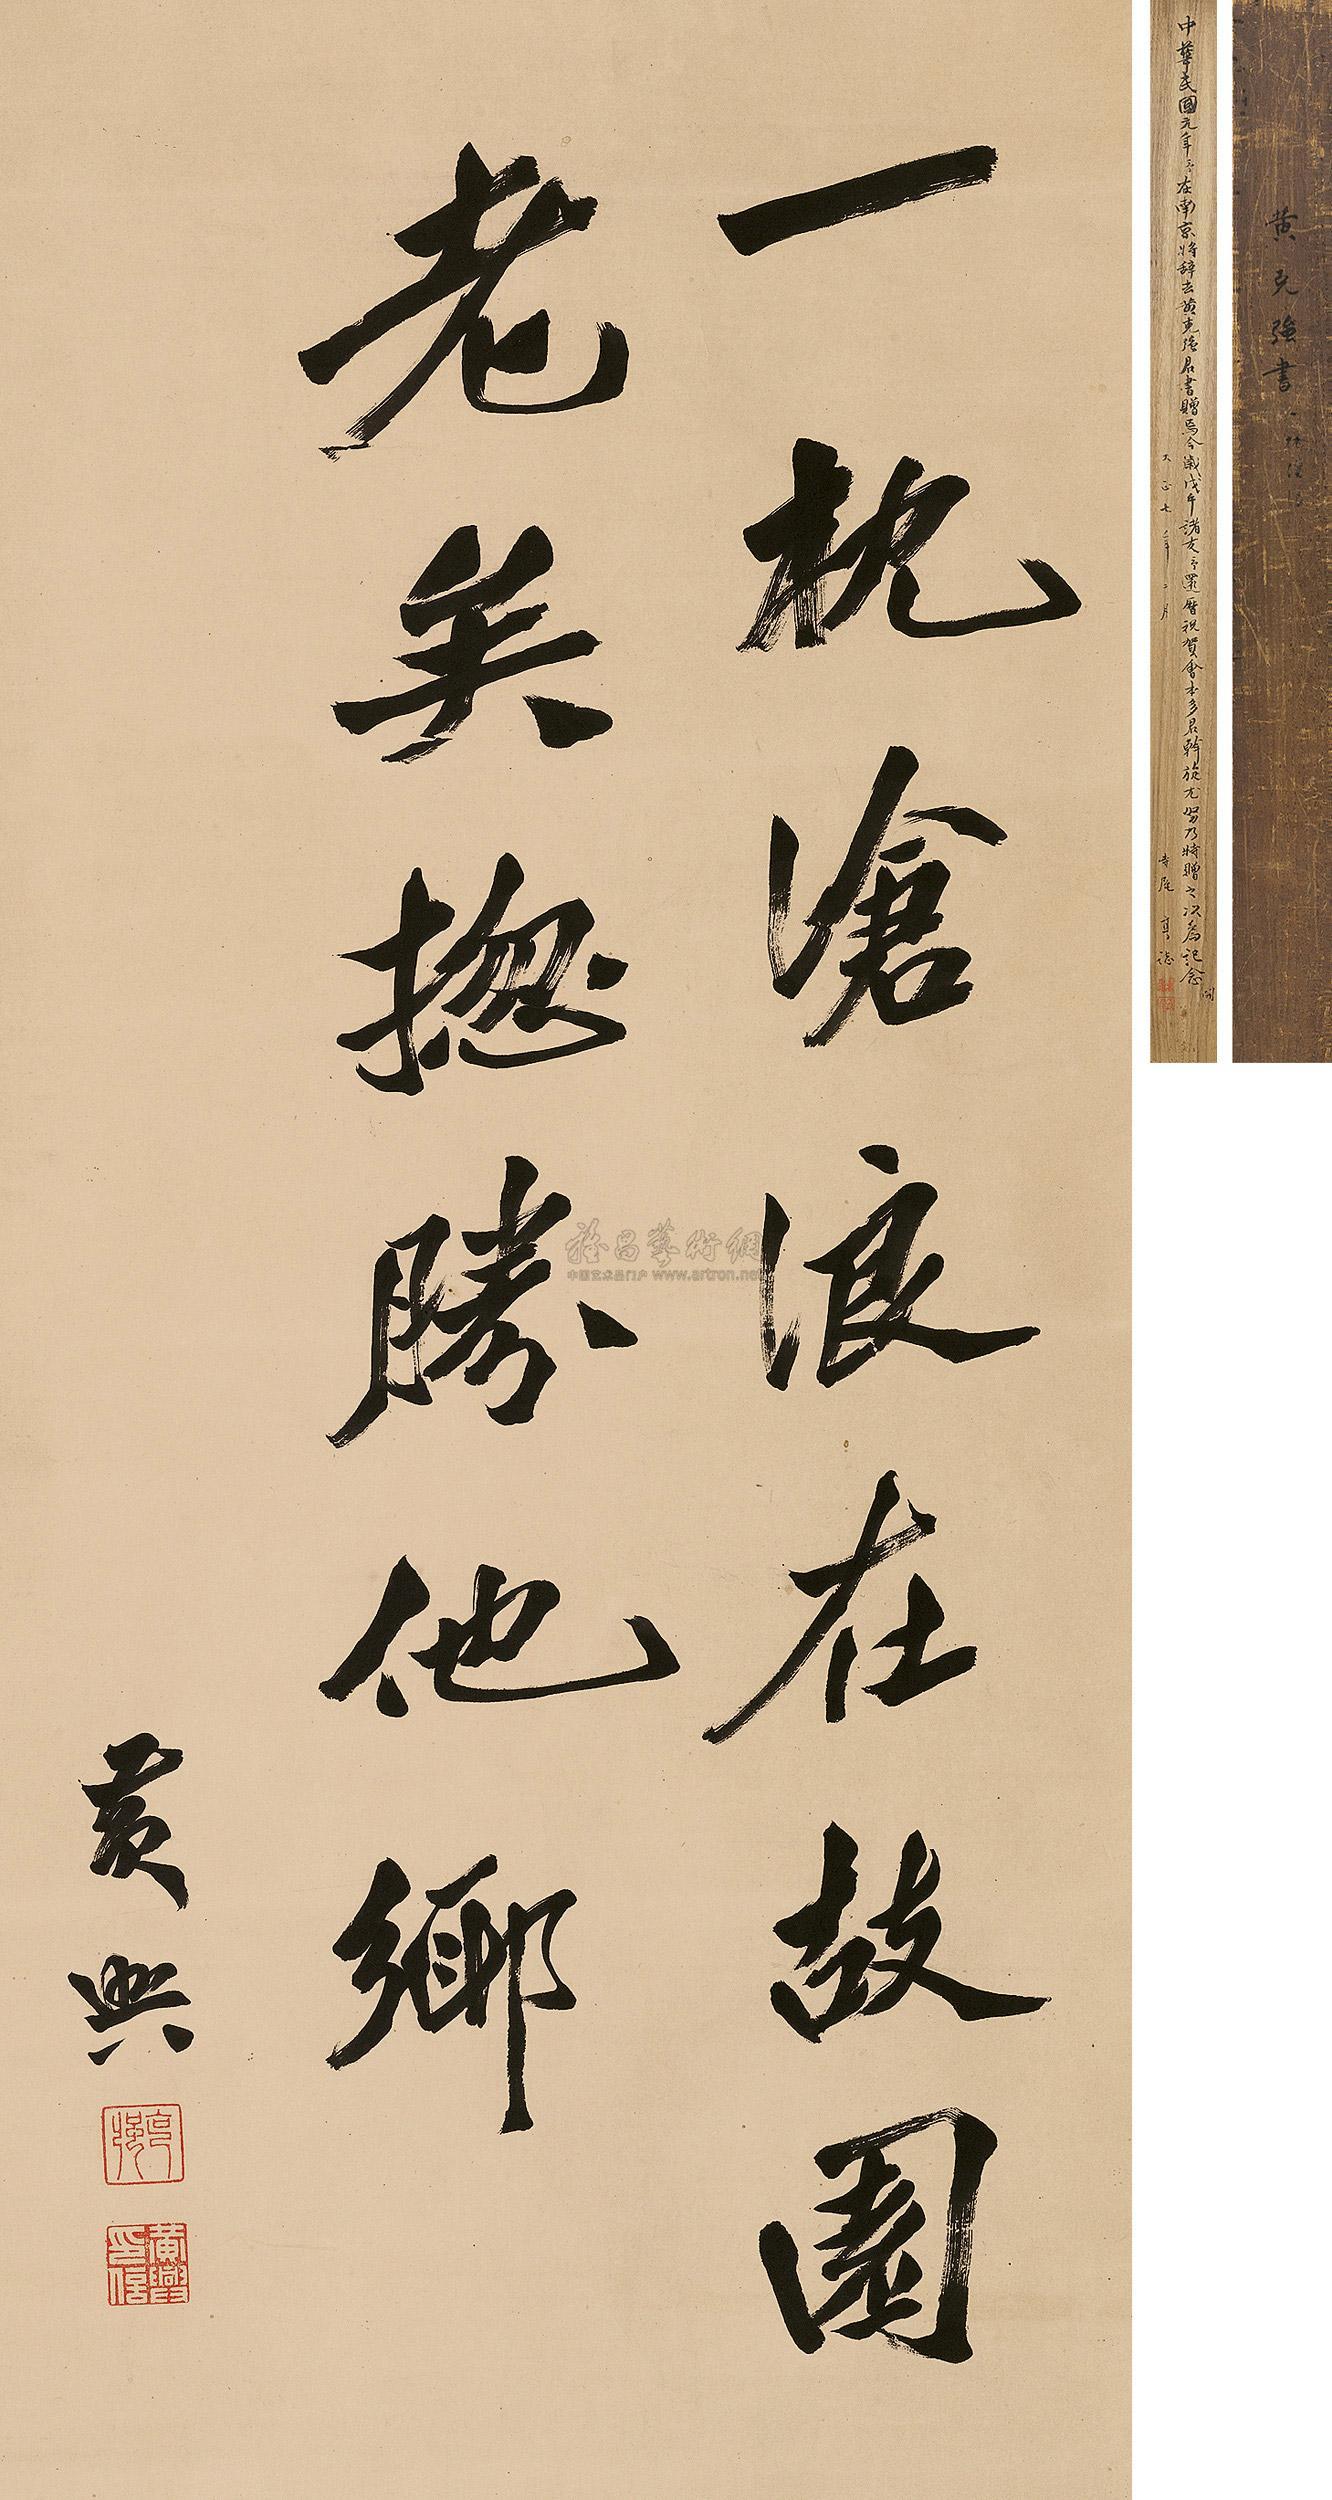 一枕滄浪在故園
老矣揔勝他鄉
黃興
黃興印信
中華民國元年予在南京將辞去黃克強君書贈焉今歲戊午諸友予還曆祝賀會本多君斡旋尤努乃特贈之以為記念
大正七年二月
寺尾亨誌
黃克強書
雅昌藝術網
中国艺术品门户 www.artron.net